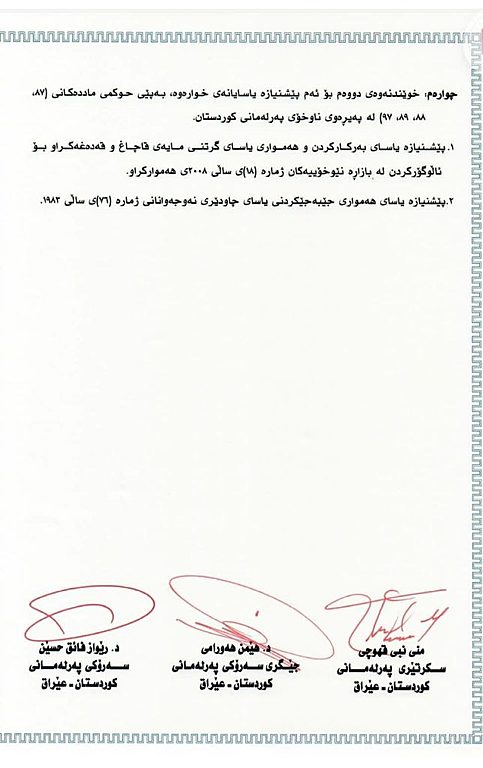 چوارەم: خوێندنەوەی دووەم بۆ ئەم پێشنیازە یاسایانەی خوارەوە، بەپێی حوکمی ماددەکانی (٨٧،
٨٨، ٨٩، ٩٧) لە پەیڕەوی ناوخۆی پەرلەمانی کوردستان.
١. پێشنیازە یاسای بەرکارکردن و هەمواری یاسای گرتنی مایەی قاچاغ و قەدەغەکراو بۆ
ئاڵوگۆڕکردن لە بازاڕە نێوخۆییەکان ژمارە (١٨)ی ساڵی ٢٠٠٨ی هەموارکراو.
٢. پێشنیازە یاسای هەمواری جێبەجێکردنی یاسای چاودێری نەوجەوانانی ژمارە (٧٦)ی ساڵی ١٩٨٣.
منی نبی قهوچی
سکرتێری پەرلەمانی
کوردستان - عێراق
د. هێمن هەورامی
جێگری سەرۆکی پەرلەمانی
کوردستان - عێراق
د. رێواز فائق حسێن
سەرۆکی پەرلەمانی
کوردستان - عێراق